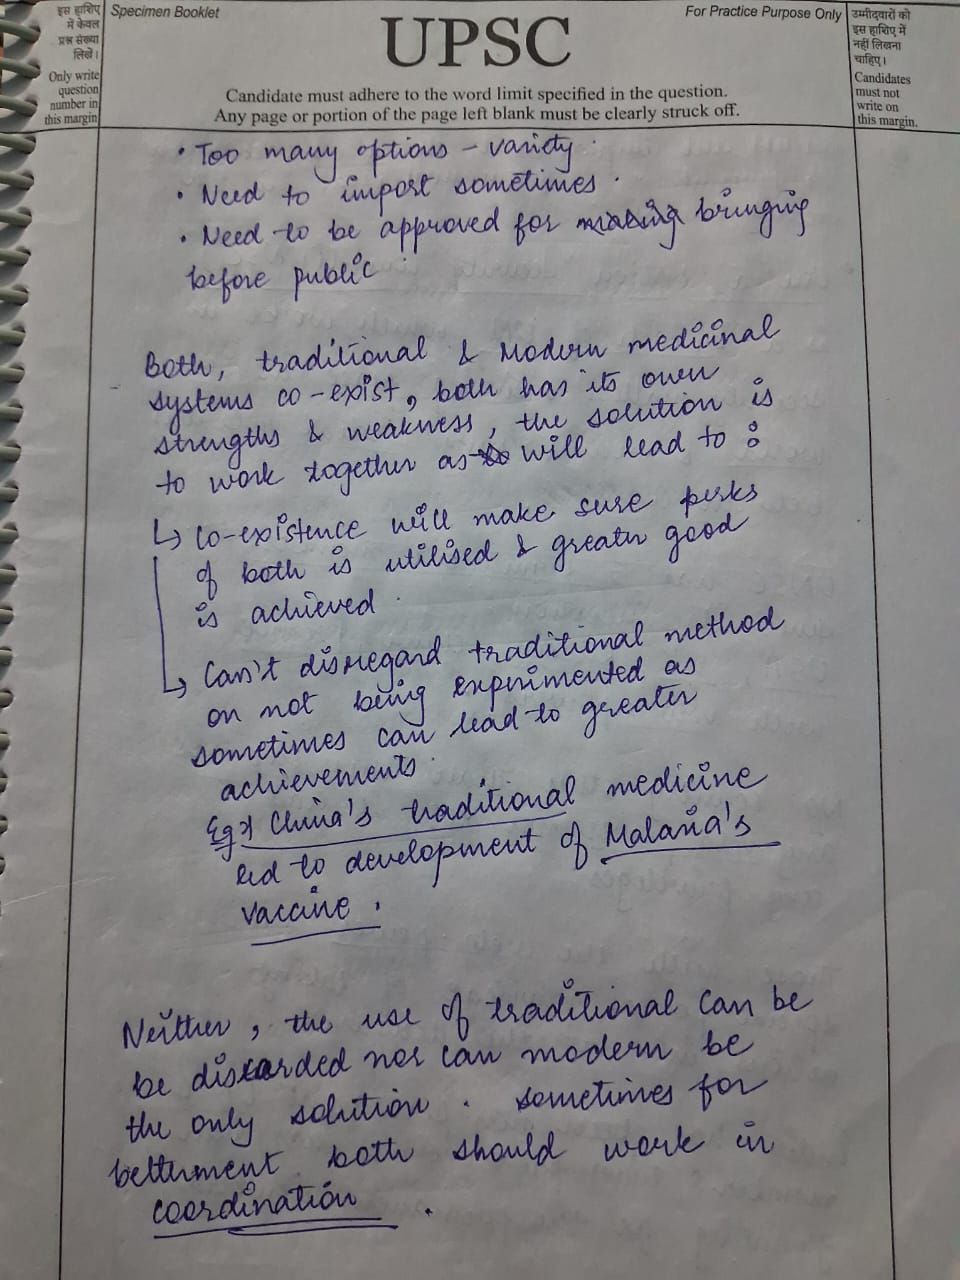 इस हाशिए
में केवल
प्रश्न संख्या
लिखें।
Only write
question
number in
this margin
Specimen Booklet
For Practice Purpose Only
UPSC
Candidate must adhere to the word limit specified in the question.
Any page or portion of the page left blank must be clearly struck off.
उम्मीदवारों को
इस हाशिए में
नहीं लिखना
चाहिए।
Candidates
must not
write on
this margin.
• Too many options - variety.
• Need to import sometimes.
• Need to be approved for bringing
before public.
Both, traditional & Modern medicinal
systems co-exist, both has its own
strengths & weakness, the solution is
to work together as will lead to :
↳ Co-existence will make sure perks
of both is utilised & greater good
is achieved.
↳ Can't disregard traditional method
on not being experimented as
sometimes can lead to greater
achievements.
Eg> China's traditional medicine
led to development of Malaria's
vaccine.
Neither, the use of traditional can be
be discarded nor can modern be
the only solution. sometimes for
betterment both should work in
coordination.